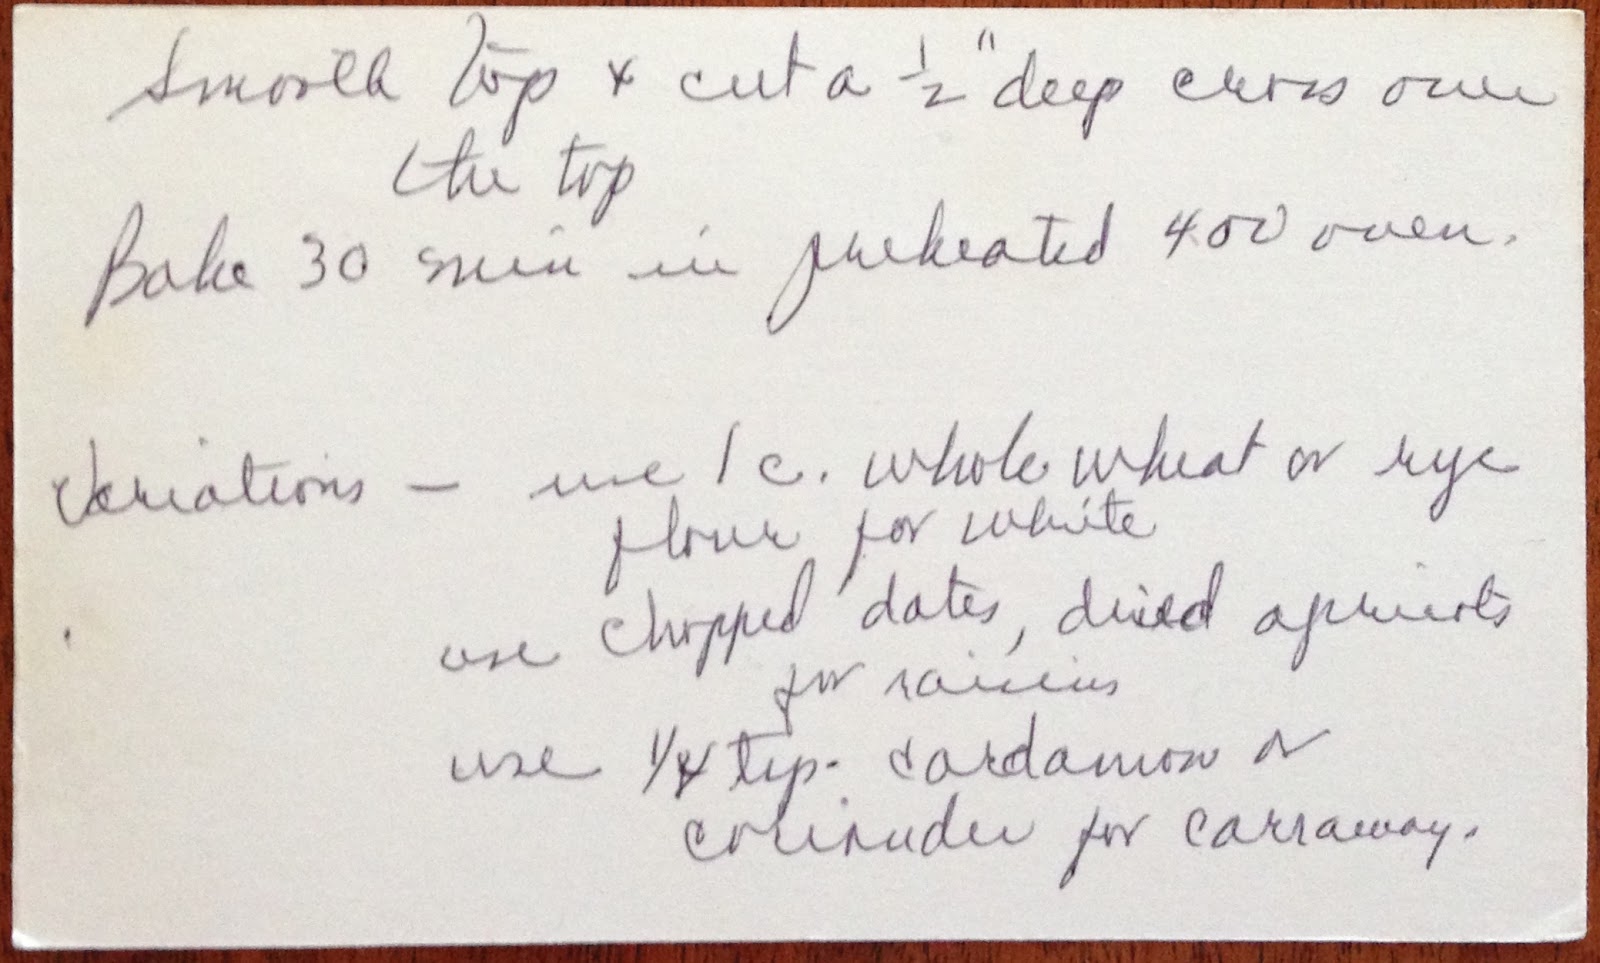 Smooth top & cut a ½" deep cross over
the top
Bake 30 min in preheated 400 oven.
Variations – use 1 c. whole wheat or rye
flour for white
use chopped dates, dried apricots
for raisins
use 1/4 tsp. cardamom or
coriander for carraway.